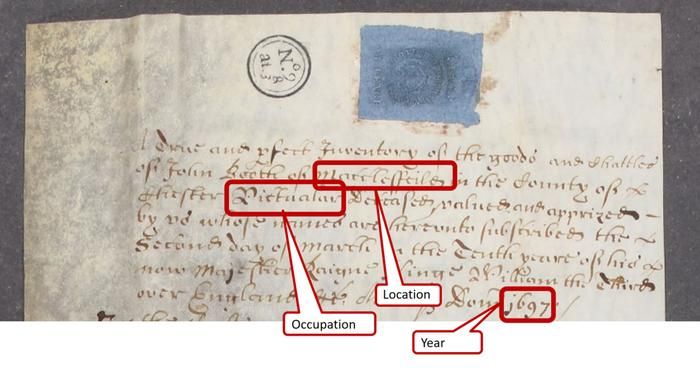 No 2
at. 8
3
A True and pfect Inventory of the goods and chattles
of John Booth of Macclesfeild in the County of
Chester Victualar Deceased, valued and apprized
by us whose names are hereunto subscribed the
Second day of March in the Tenth yeare of his
now Majesties Raigne Kinge William the Third
over England &c Dom 1697
Location
Occupation
Year